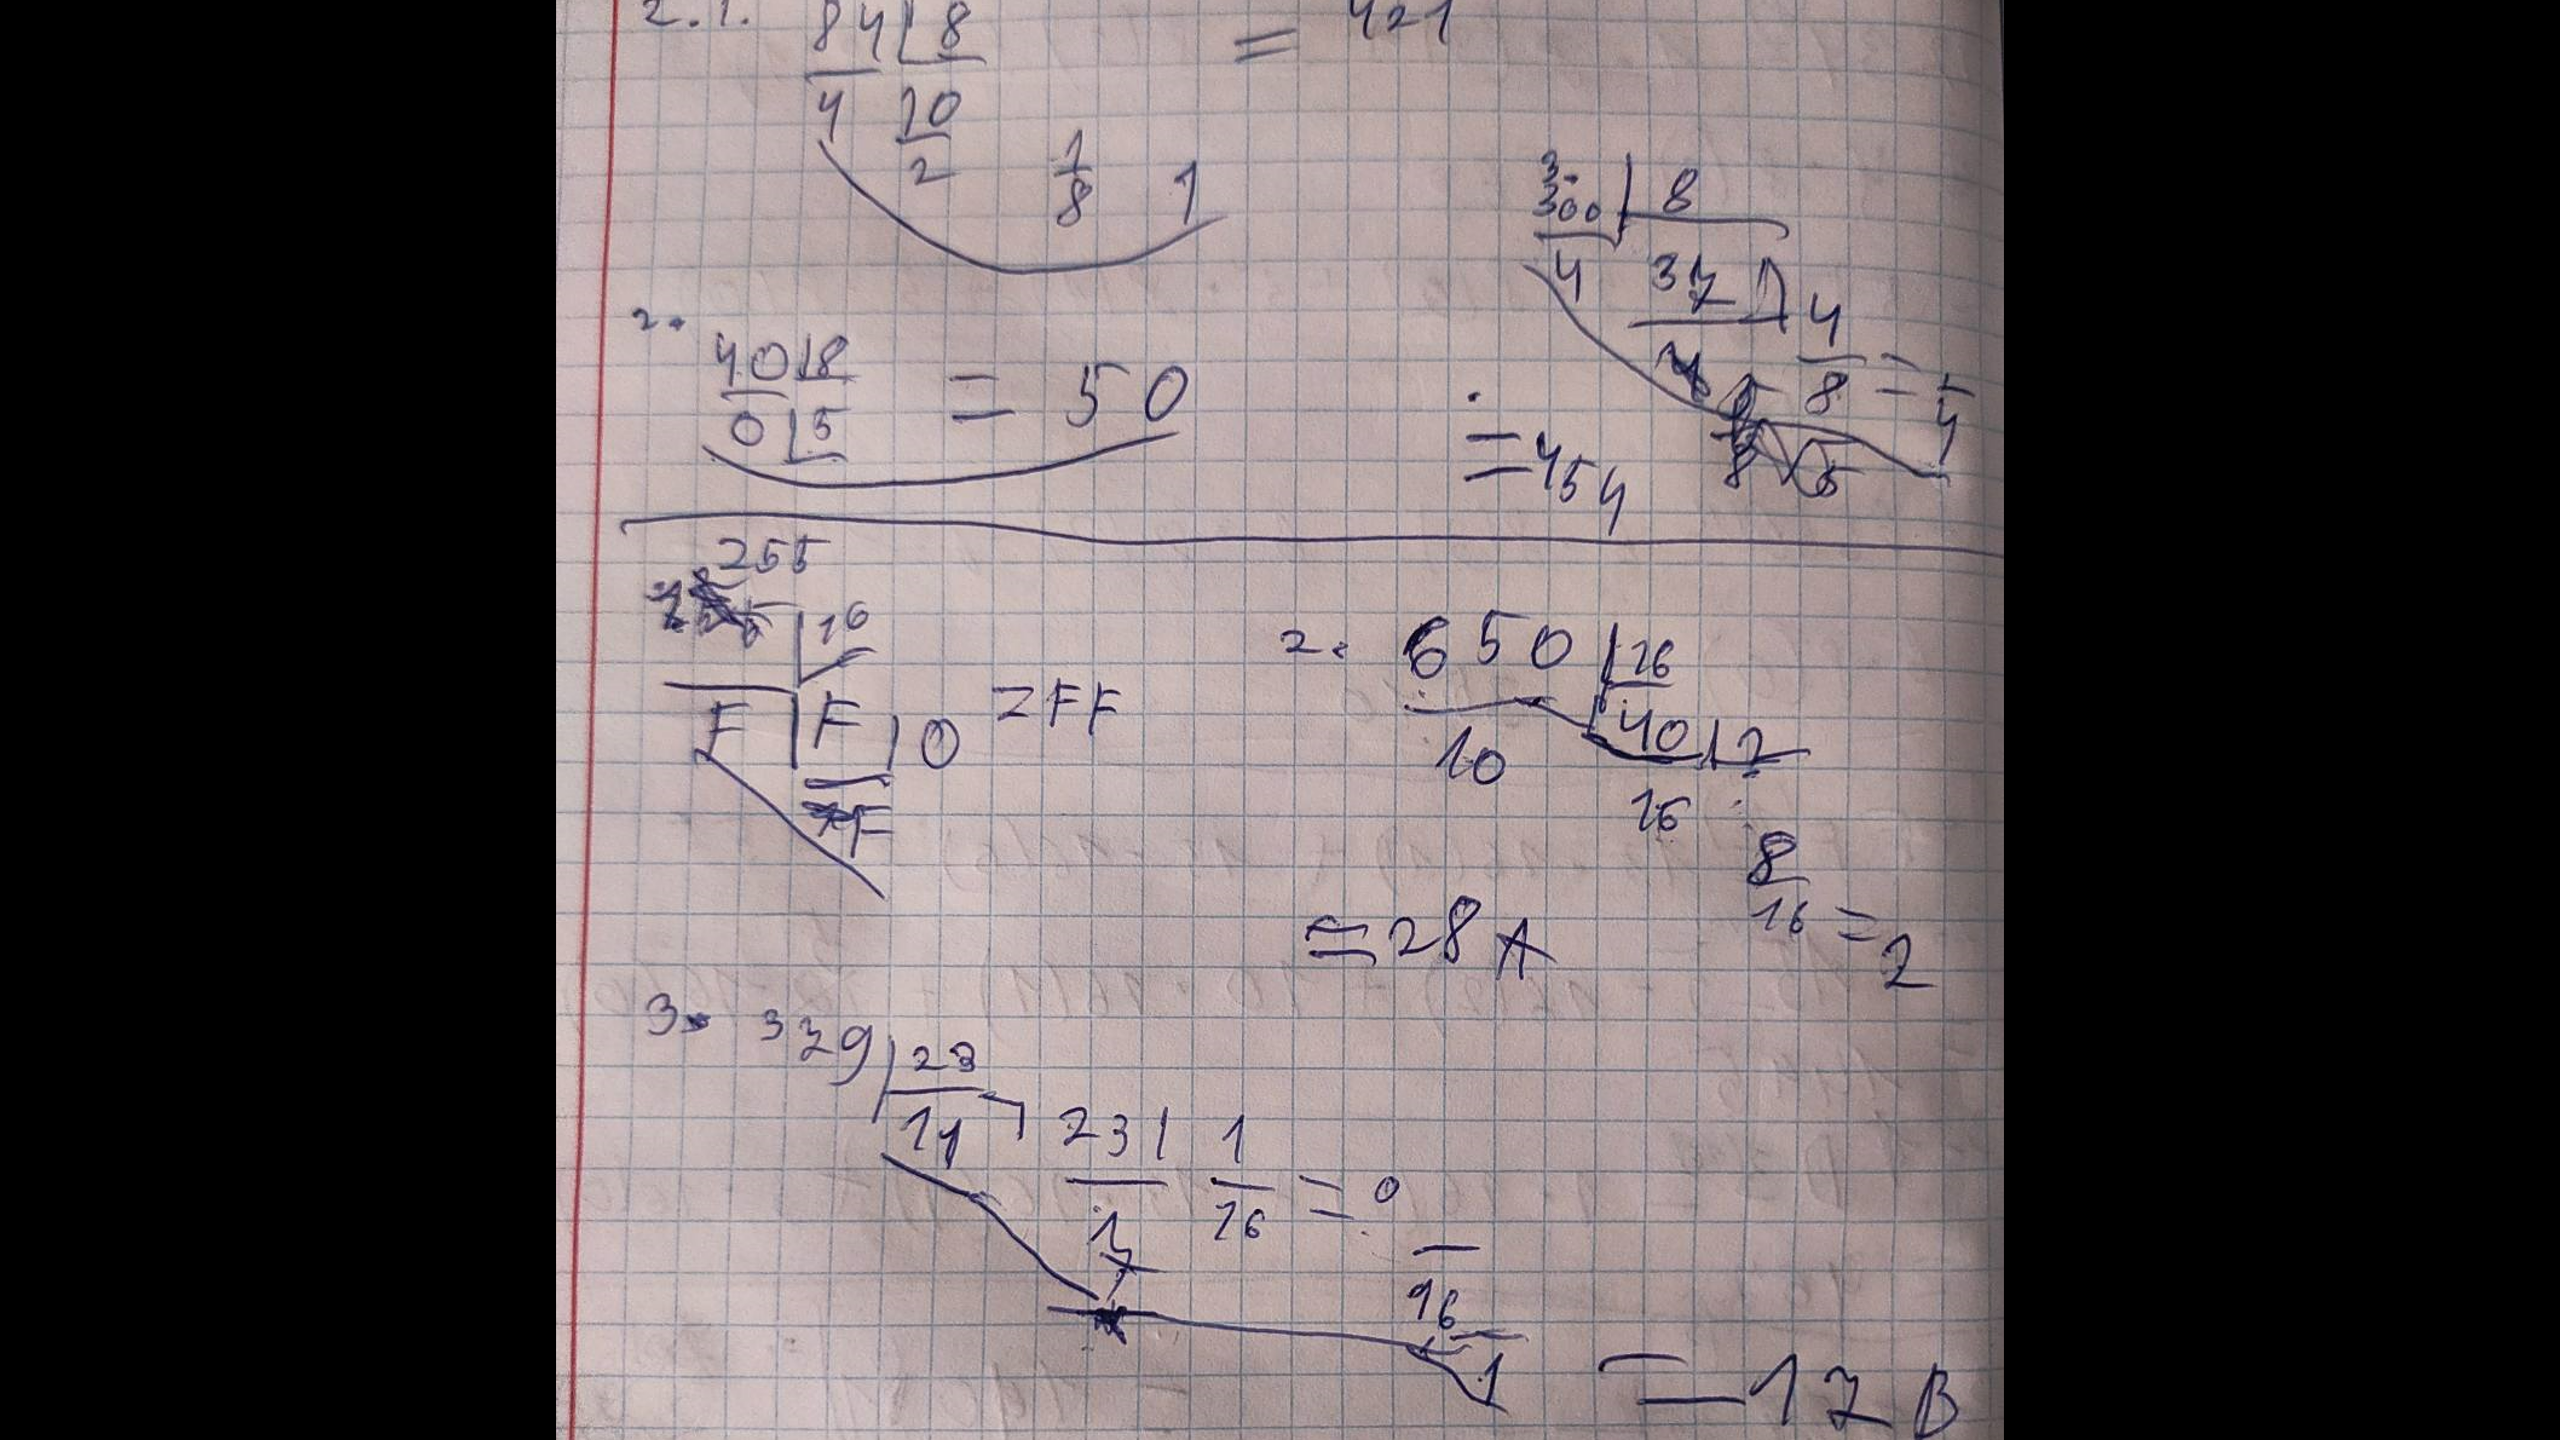 2.1. 84 | 8 = 421
4 10
2 1/8 1
3.
300 | 8
4 37 4
5 8 = 4
= 454
2.
40 | 8 = 50
0 | 5
255
16
F | F | 0 = FF
F
2. 650 | 16
10 40 | 2
16
8
16 = 2
= 28A
3. 379 | 23
11 23 | 1
7 16 = 0
16
1
= 17B